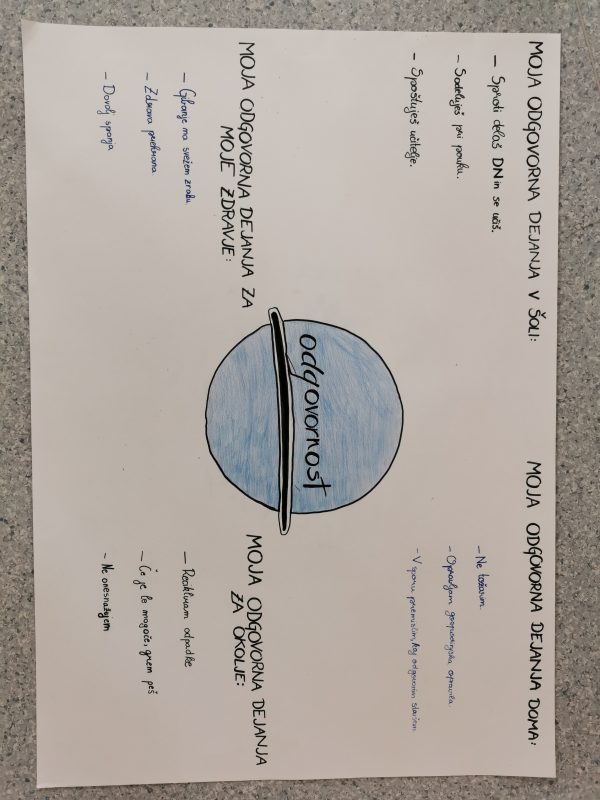 MOJA ODGOVORNA DEJANJA V ŠOLI:
– Sproti delaš DN in se učiš.
– Sodeluješ pri pouku.
– Spoštuješ učitelje.
MOJA ODGOVORNA DEJANJA DOMA:
– Ne tožarim.
– Opravljam gospodinjska opravila.
– V sporu premislim, kaj odgovorim staršem.
odgovornost
MOJA ODGOVORNA DEJANJA ZA
MOJE ZDRAVJE:
– Gibanje na svežem zraku
– Zdrava prehrana
– Dovolj spanja
MOJA ODGOVORNA DEJANJA
ZA OKOLJE:
– Recikliram odpadke
– Če je le mogoče, grem peš
– Ne onesnažujem